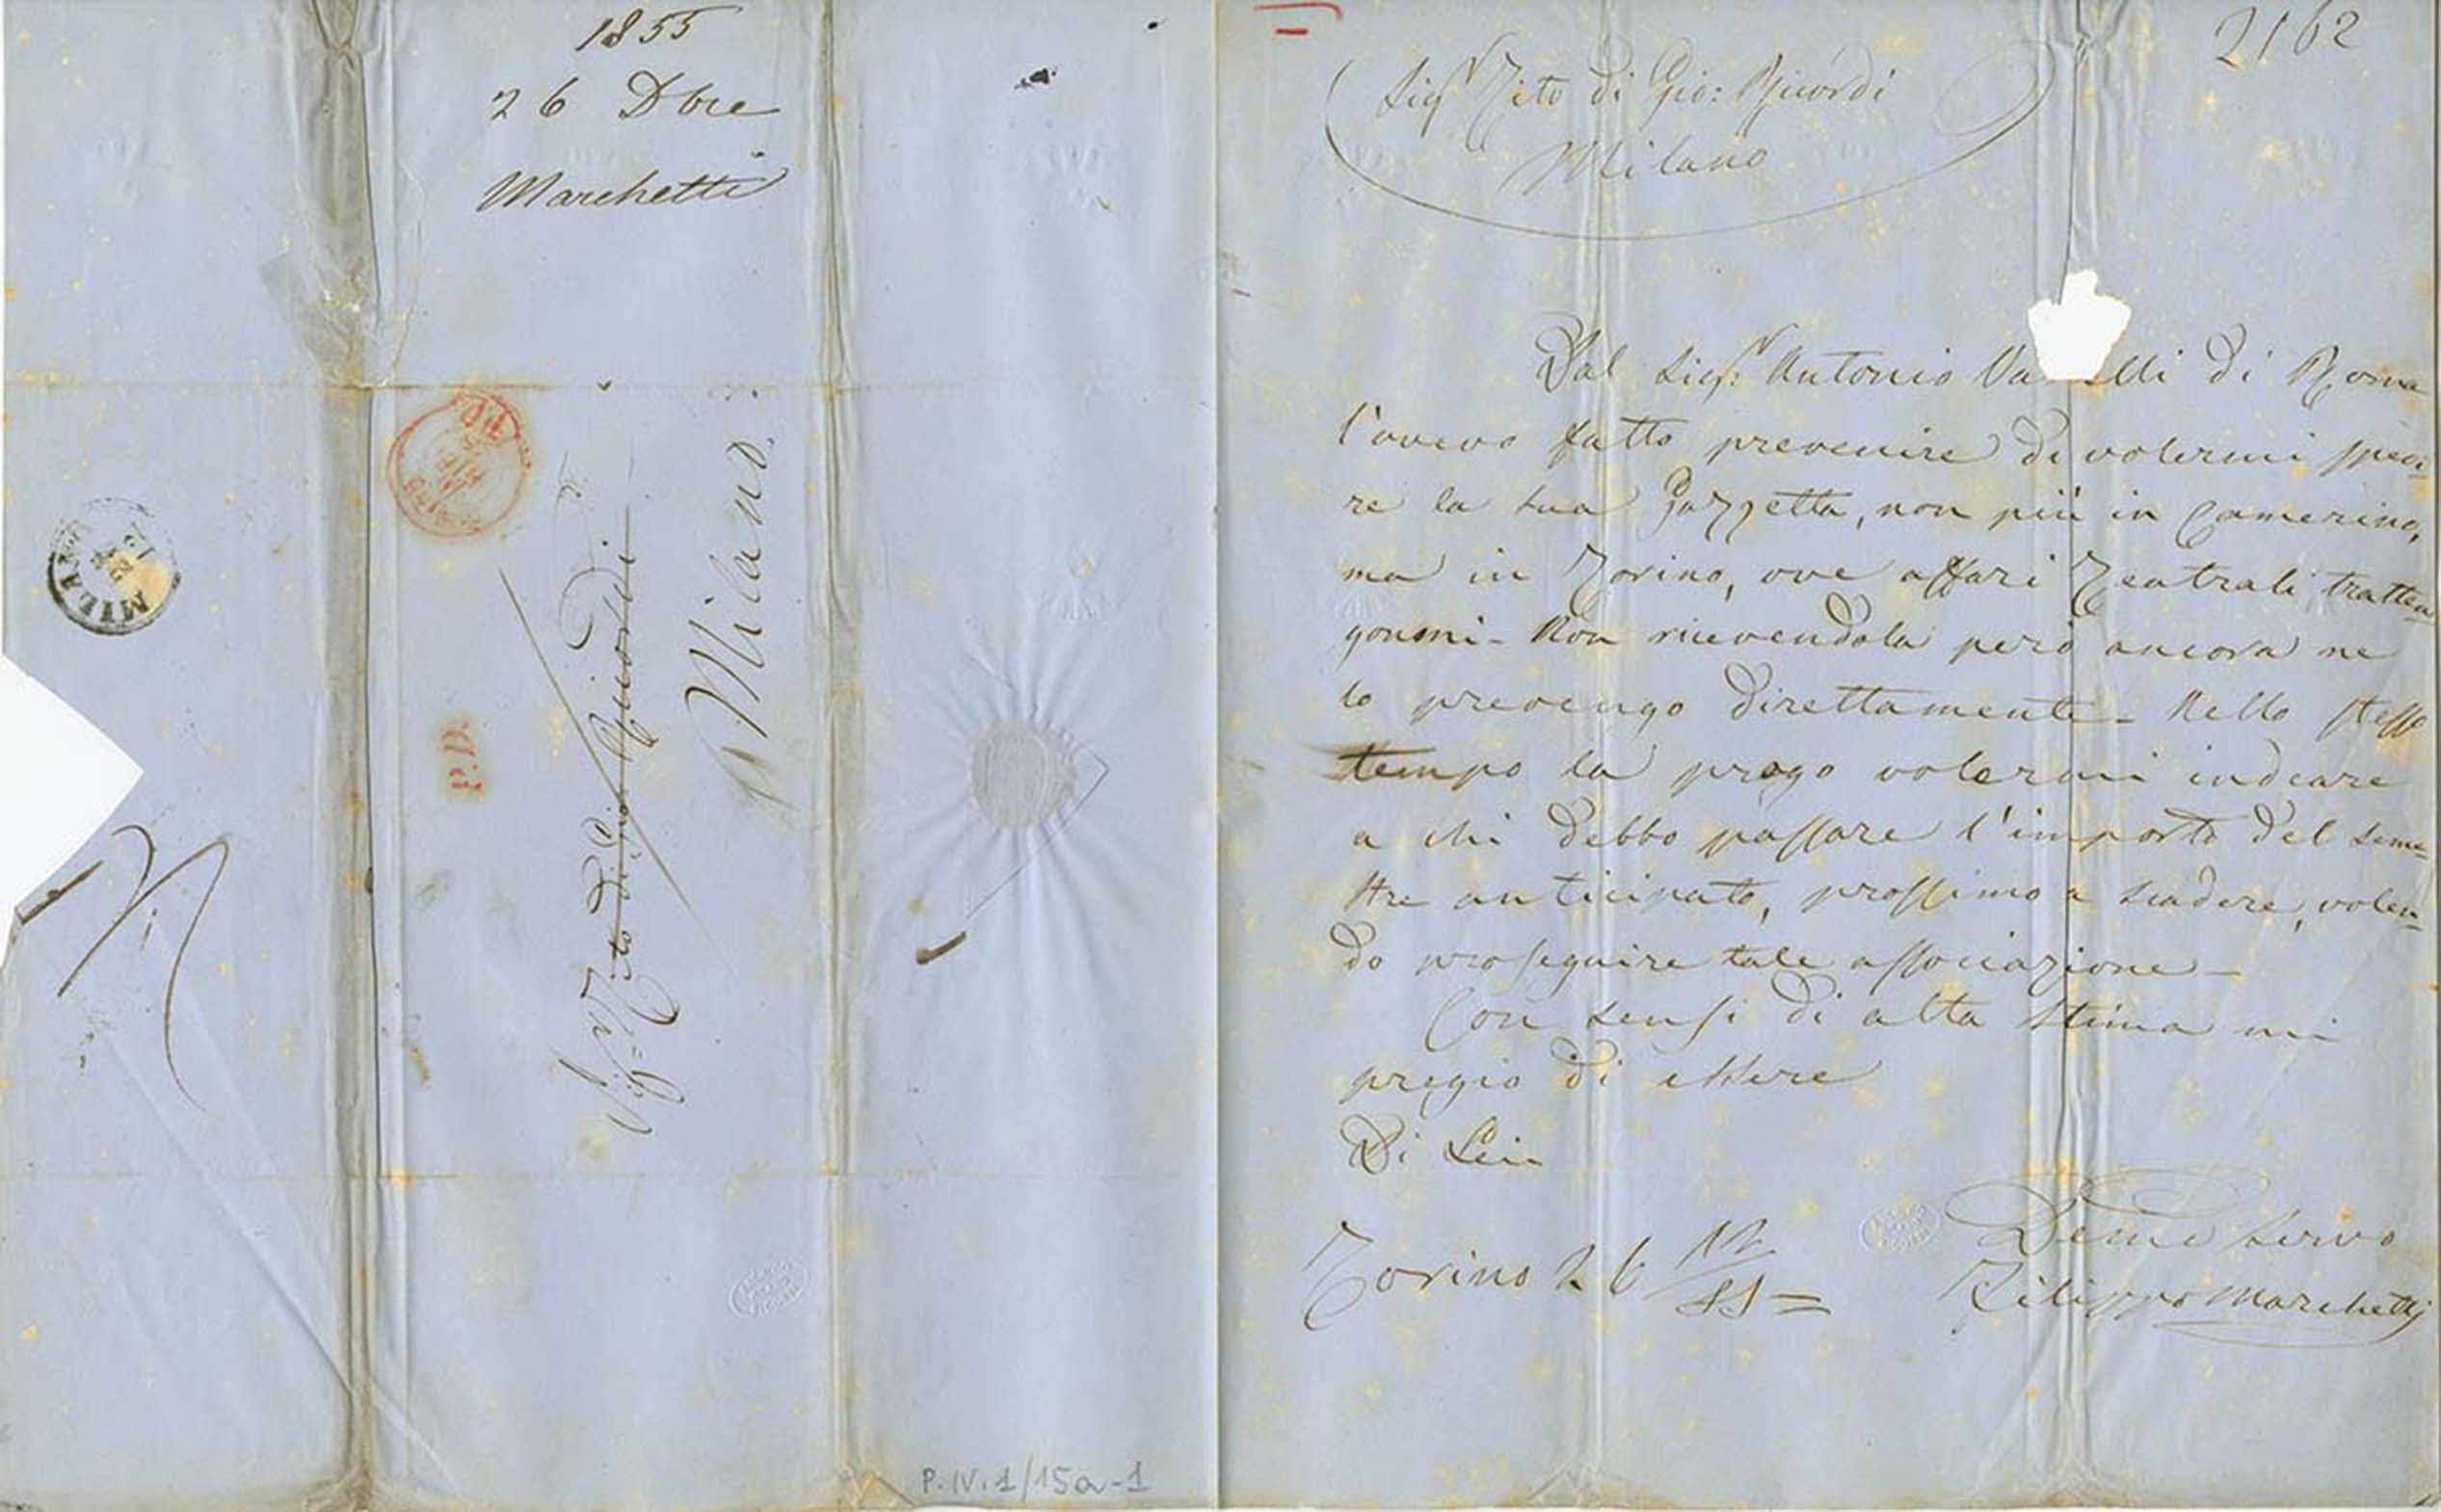 1855
26 Dbre
Marchetti
MILANO
P.D.
Sigr Tito di Gio: Ricordi
Milano.
P.IV.1/15a-1
2162
Sigr Tito di Gio: Ricordi
Milano
Dal Sigr: Antonio Va elli di Roma
l'avevo fatto prevenire di volermi spedi
re la sua Gazzetta, non più in Camerino,
ma in Torino, ove affari Teatrali tratten
gonmi - Non ricevendola però ancora ne
lo prevengo direttamente - Nello stesso
tempo la prego volermi indicare
a chi debbo passare l'importo del seme=
stre anticipato, prossimo a scadere, volen=
do proseguire tale associazione -
Con sensi di alta stima mi
pregio di essere
Di Lei
Torino 26 12/55 =
Servo
Filippo Marchetti